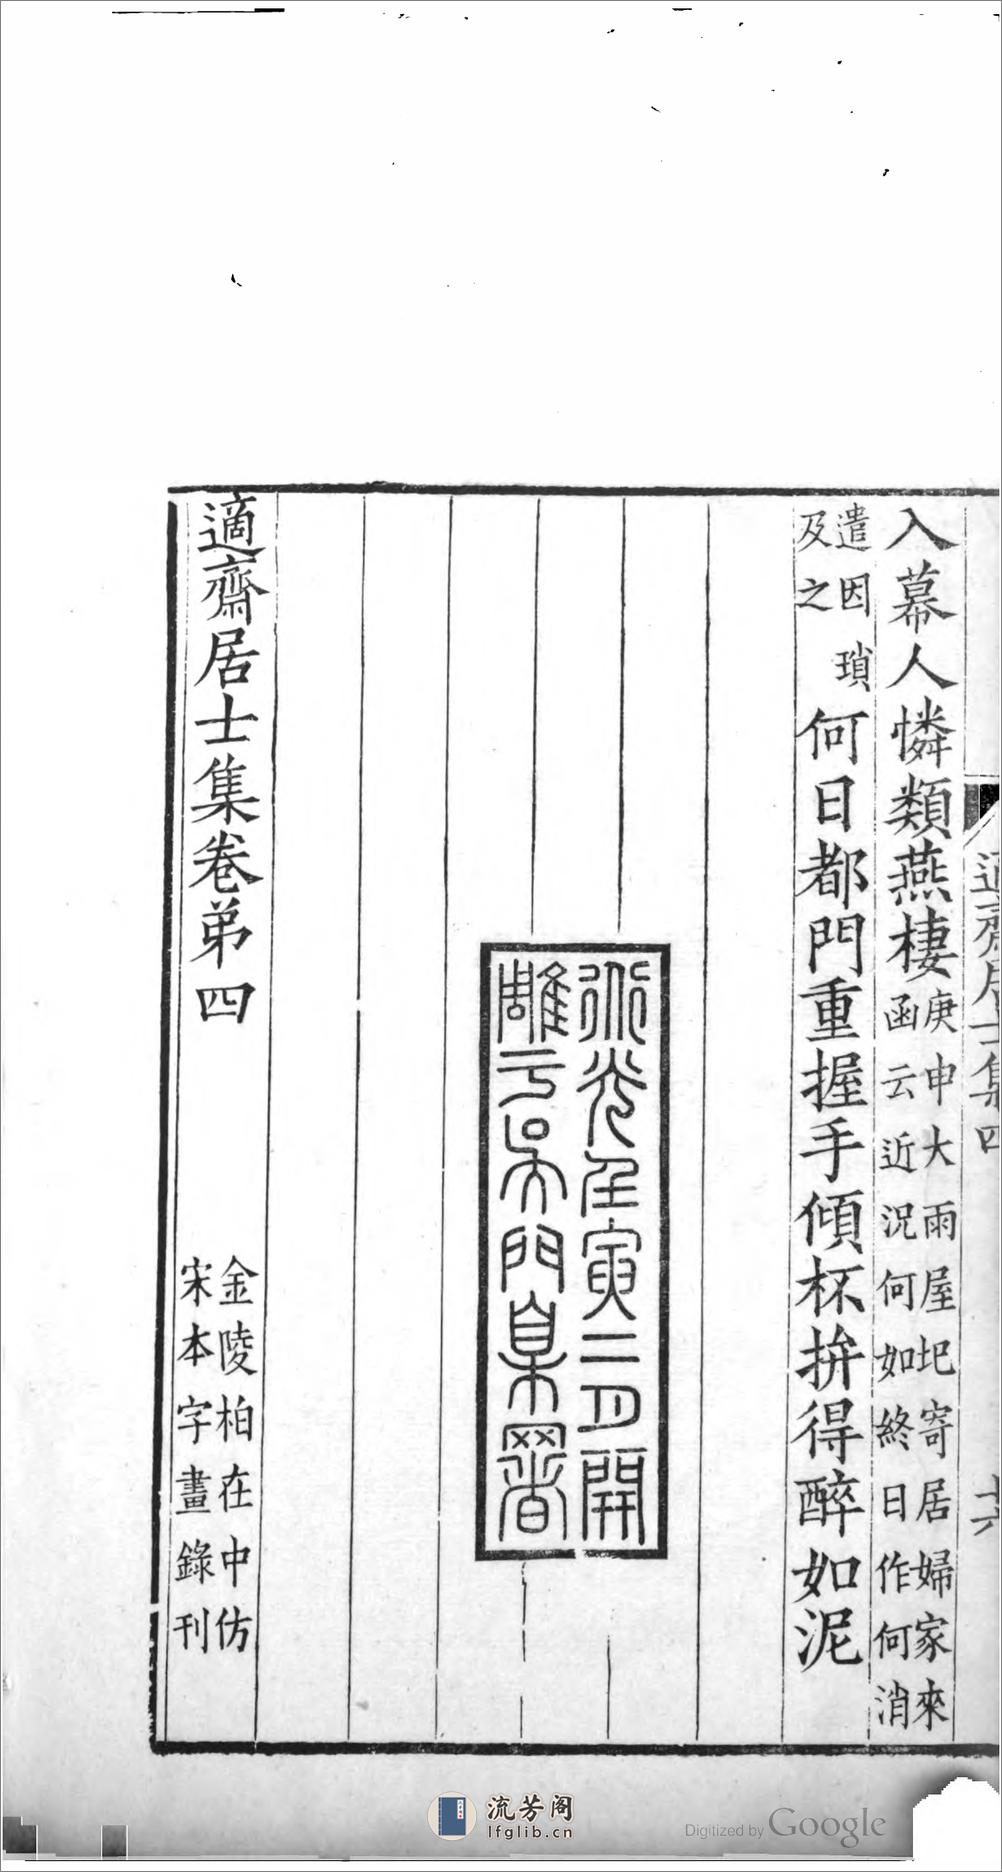 適齋居士集四 十六
入幕人憐類燕棲
庚申大雨屋圯寄居婦家來
函云近況何如終日作何消
遣因瑣
及之
何日都門重握手傾杯拚得醉如泥
道光壬寅二月開
雕于吳門臬署
適齋居士集卷弟四
金陵柏在中仿
宋本字畫錄刊
流芳阁
lfglib.cn
Digitized by Google